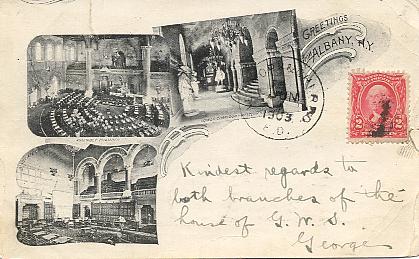 GREETINGS
FROM ALBANY, N.Y.
ASSEMBLY CHAMBER
1903
2
2
Kindest regards to
both branches of the
house of G. W. S.
George